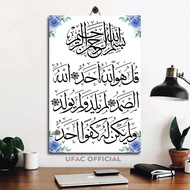 بسم الله الرحمن الرحيم
قل هو الله أحد الله
الصمد لم يلد ولم يولد
ولم يكن له كفوا أحد
UFAC OFFICIAL